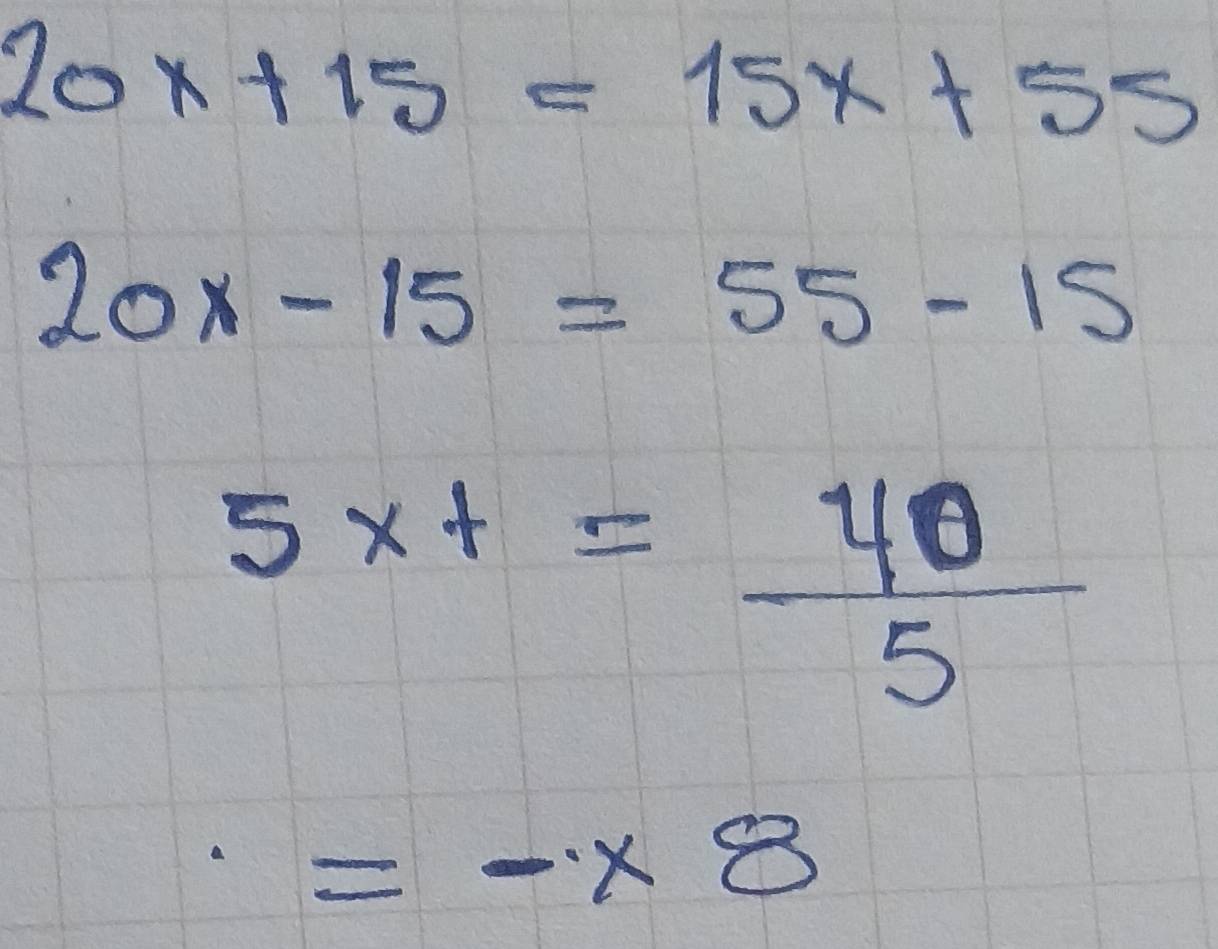 20x + 15 = 15x + 55
20x - 15 = 55 - 15
5x + = 40
5
. = - · x 8